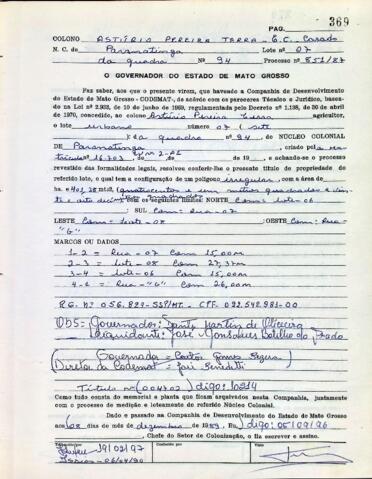 PAG.
369
COLONO ASTÚRIO PEREIRA TERRA - E.C. Casado
N. C. de Paranatinga Lote nº 07
da quadra Nº 94 Processo nº 851/87
O GOVERNADOR DO ESTADO DE MATO GROSSO
Faz saber, aos que o presente virem, que havendo a Companhia de Desenvolvimento
do Estado de Mato Grosso - CODEMAT-, de acôrdo com os pareceres Técnico e Jurídico, basea-
do na Lei nº 2.933, de 10 de junho de 1969, regulamentada pelo Decreto nº 1.138, de 30 de abril
de 1970, concedido, ao colono Astúrio Pereira Terra agricultor,
o lote urbano número 07 (sete)
da quadra nº 94, do NÚCLEO COLONIAL
DE Paranatinga, criado pela ma-
trícula nº 16.703 de 19 , e achando-se o processo
revestido das formalidades legais, resolveu conferir-lhe o presente título de propriedade do
referido lote, o qual tem a configuração de um polígono irregular, com a área de
401,28 mts2 (quatrocentos e um metros quadrados e vin-
te e oito com os seguintes limites: NORTE Com: Lote-06
; SUL Com= Rua-07
LESTE Com= Lote-08 ; OESTE Com= Rua=
"G"
MARCOS OU DADOS
1-2 = Rua-07 Com 15,00m
2-3 = Lote-08 Com 27,37m
3-4 = Lote-06 Com 15,00m
4-1 = Rua-"G" Com 26,00m
RG. Nº 056.829-SSP/MT. - CPF. 022.542.981-00
OBS= Governador: Dante Martins de Oliveira
Liquidante: José Gonçalves Botelho do Prado
Governador = Carlos Gomes Bezerra
Diretor da Codemat = Jair Benedetti
Título nº (004702) digo: 10214
Como tudo consta do memorial e planta que ficam arquivados nesta Companhia, juntamente
com o processo de medição e loteamento do referido Núcleo Colonial.
Dado e passado na Companhia de Desenvolvimento do Estado de Mato Grosso
aos (08 dias do mês de dezembro de 1989, Eu, digo: 05/09/96
, Chefe do Setor de Colonização, o fiz escrever e assino.
19/02/97 Visto
06/04/90